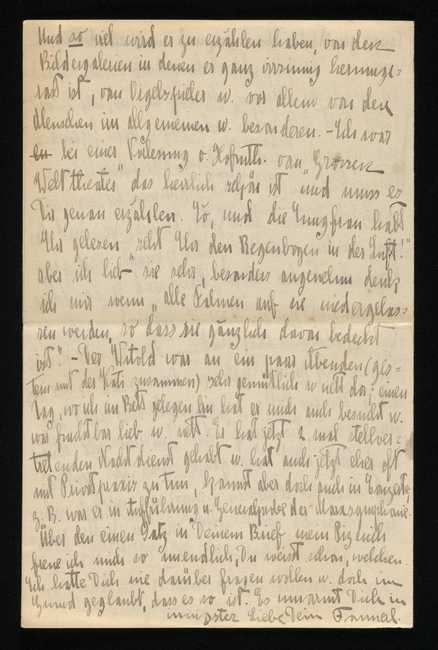 Und so viel wird er zu erzählen haben, von den
Bildergalerien in denen er ganz irrsinnig herumge-
rast ist, vom Orgelspieler u. vor allem von den
Menschen im allgemeinen u. besonderen. - Ich war
bei einer Vorlesung v. Hofmth. vom "Grossen
Welttheater" das herrlich schön ist und muss es
Dir genau erzählen. Ja, und die Jungfrau habt
Ihr gelesen "seht Ihr den Regenbogen in der Luft!"
aber ich lieb' sie sehr, besonders angenehm denk
ich mir wenn "alle Fahnen auf sie niedergelas-
sen werden, so dass sie gänzlich davon bedeckt
ist". - Der Witold war an ein paar Abenden (ges-
tern mit der Kats zusammen) sehr gemütlich u. nett da; einen
Tag, wo ich im Bett gelegen bin hat er mich auch besucht u.
war furchtbar lieb u. nett. Er hat jetzt 2 mal stellver-
tretenden Nachtdienst gehabt u. hat auch jetzt eher oft
mit Privatpraxis zu tun, kommt aber doch auch in Konzerte,
z. B. war er in Aufführung u. Generalprobe der
Über den einen Satz in Deinem Brief mein
freue ich mich so unendlich, Du weisst schon, welchen.
Ich hatte Dich nie darüber fragen wollen u. doch im
Grund geglaubt, dass es so ist. Es umarmt Dich in
innigster Liebe Dein